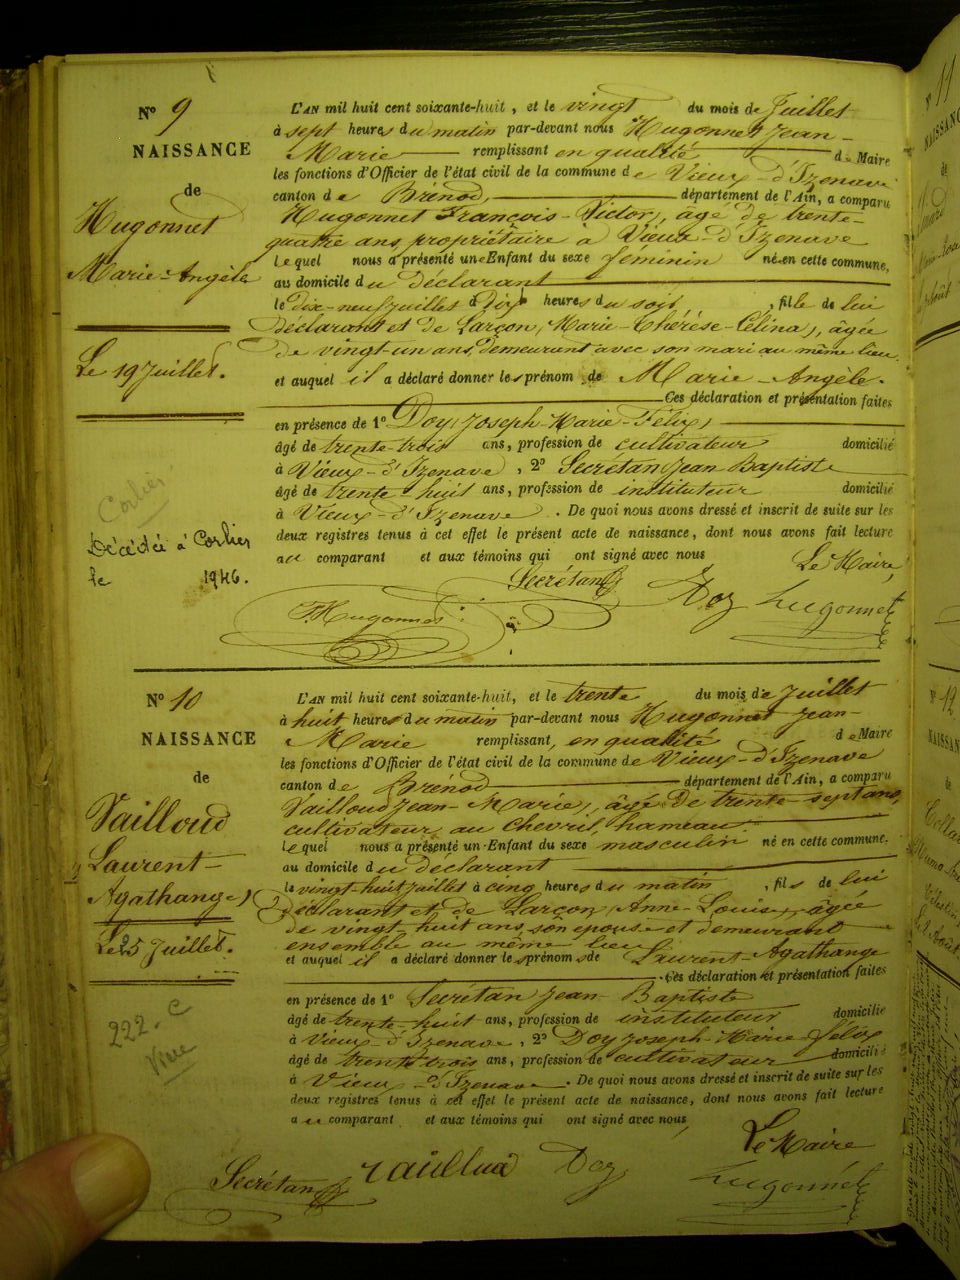 N° 9
NAISSANCE
de
Hugonnet
Marie-Angèle
Le 19 Juillet.
Corlier
Décédée à Corlier
le 1946.
L'AN mil huit cent soixante-huit, et le vingt du mois de Juillet
à sept heures du matin par-devant nous Hugonnet Jean-
Marie remplissant en qualité de Maire
les fonctions d'Officier de l'état civil de la commune de Vieux-d'Izenave
canton de Brénod, département de l'Ain, a comparu
Hugonnet François-Victor, âgé de trente-
quatre ans, propriétaire à Vieux-d'Izenave
lequel nous a présenté un Enfant du sexe féminin né en cette commune,
au domicile du déclarant
le dix-neuf juillet à dix heures du soir, fille de lui
déclarant et de Larçon, Marie-Thérèse-Célina, âgée
de vingt-un ans, demeurant avec son mari au même lieu.
et auquel il a déclaré donner les prénom de Marie-Angèle.
Ces déclaration et présentation faites
en présence de 1° Doy, Joseph-Marie-Félix,
âgé de trente-trois ans, profession de cultivateur domicilié
à Vieux-d'Izenave, 2° Secrétan Jean Baptiste
âgé de trente-huit ans, profession de instituteur domicilié
à Vieux-d'Izenave. De quoi nous avons dressé et inscrit de suite sur les
deux registres tenus à cet effet le présent acte de naissance, dont nous avons fait lecture
au comparant et aux témoins qui ont signé avec nous
Le Maire,
Secrétan Doy Hugonnet
Hugonnet
N° 10
NAISSANCE
de
Vailloud
Laurent-
Agathange
Le 25 Juillet.
222. C
Vine
L'AN mil huit cent soixante-huit, et le trente du mois de Juillet
à huit heures du matin par-devant nous Hugonnet Jean-
Marie remplissant, en qualité de Maire
les fonctions d'Officier de l'état civil de la commune de Vieux-d'Izenave
canton de Brénod département de l'Ain, a comparu
Vailloud Jean-Marie, âgé de trente-sept ans,
cultivateur au Chevril, hameau
lequel nous a présenté un Enfant du sexe masculin né en cette commune.
au domicile du déclarant
le vingt-huit juillet à cinq heures du matin, fils de lui
déclarant et de Larçon, Anne-Louise, âgée
de vingt-huit ans, son épouse et demeurant
ensemble au même lieu
et auquel il a déclaré donner les prénoms de Laurent-Agathange
Ces déclaration et présentation faites
en présence de 1° Secrétan Jean-Baptiste
âgé de trente-huit ans, profession de instituteur domicilié
à Vieux-d'Izenave, 2° Doy Joseph-Marie Félix
âgé de trente-trois ans, profession de cultivateur domicilié
à Vieux-d'Izenave. De quoi nous avons dressé et inscrit de suite sur les
deux registres tenus à cet effet le présent acte de naissance, dont nous avons fait lecture
au comparant et aux témoins qui ont signé avec nous,
Le Maire
Secrétan vailluod Doy Hugonnet
N° 11
NAISSANCE
de
N° 12
NAISSANCE
de